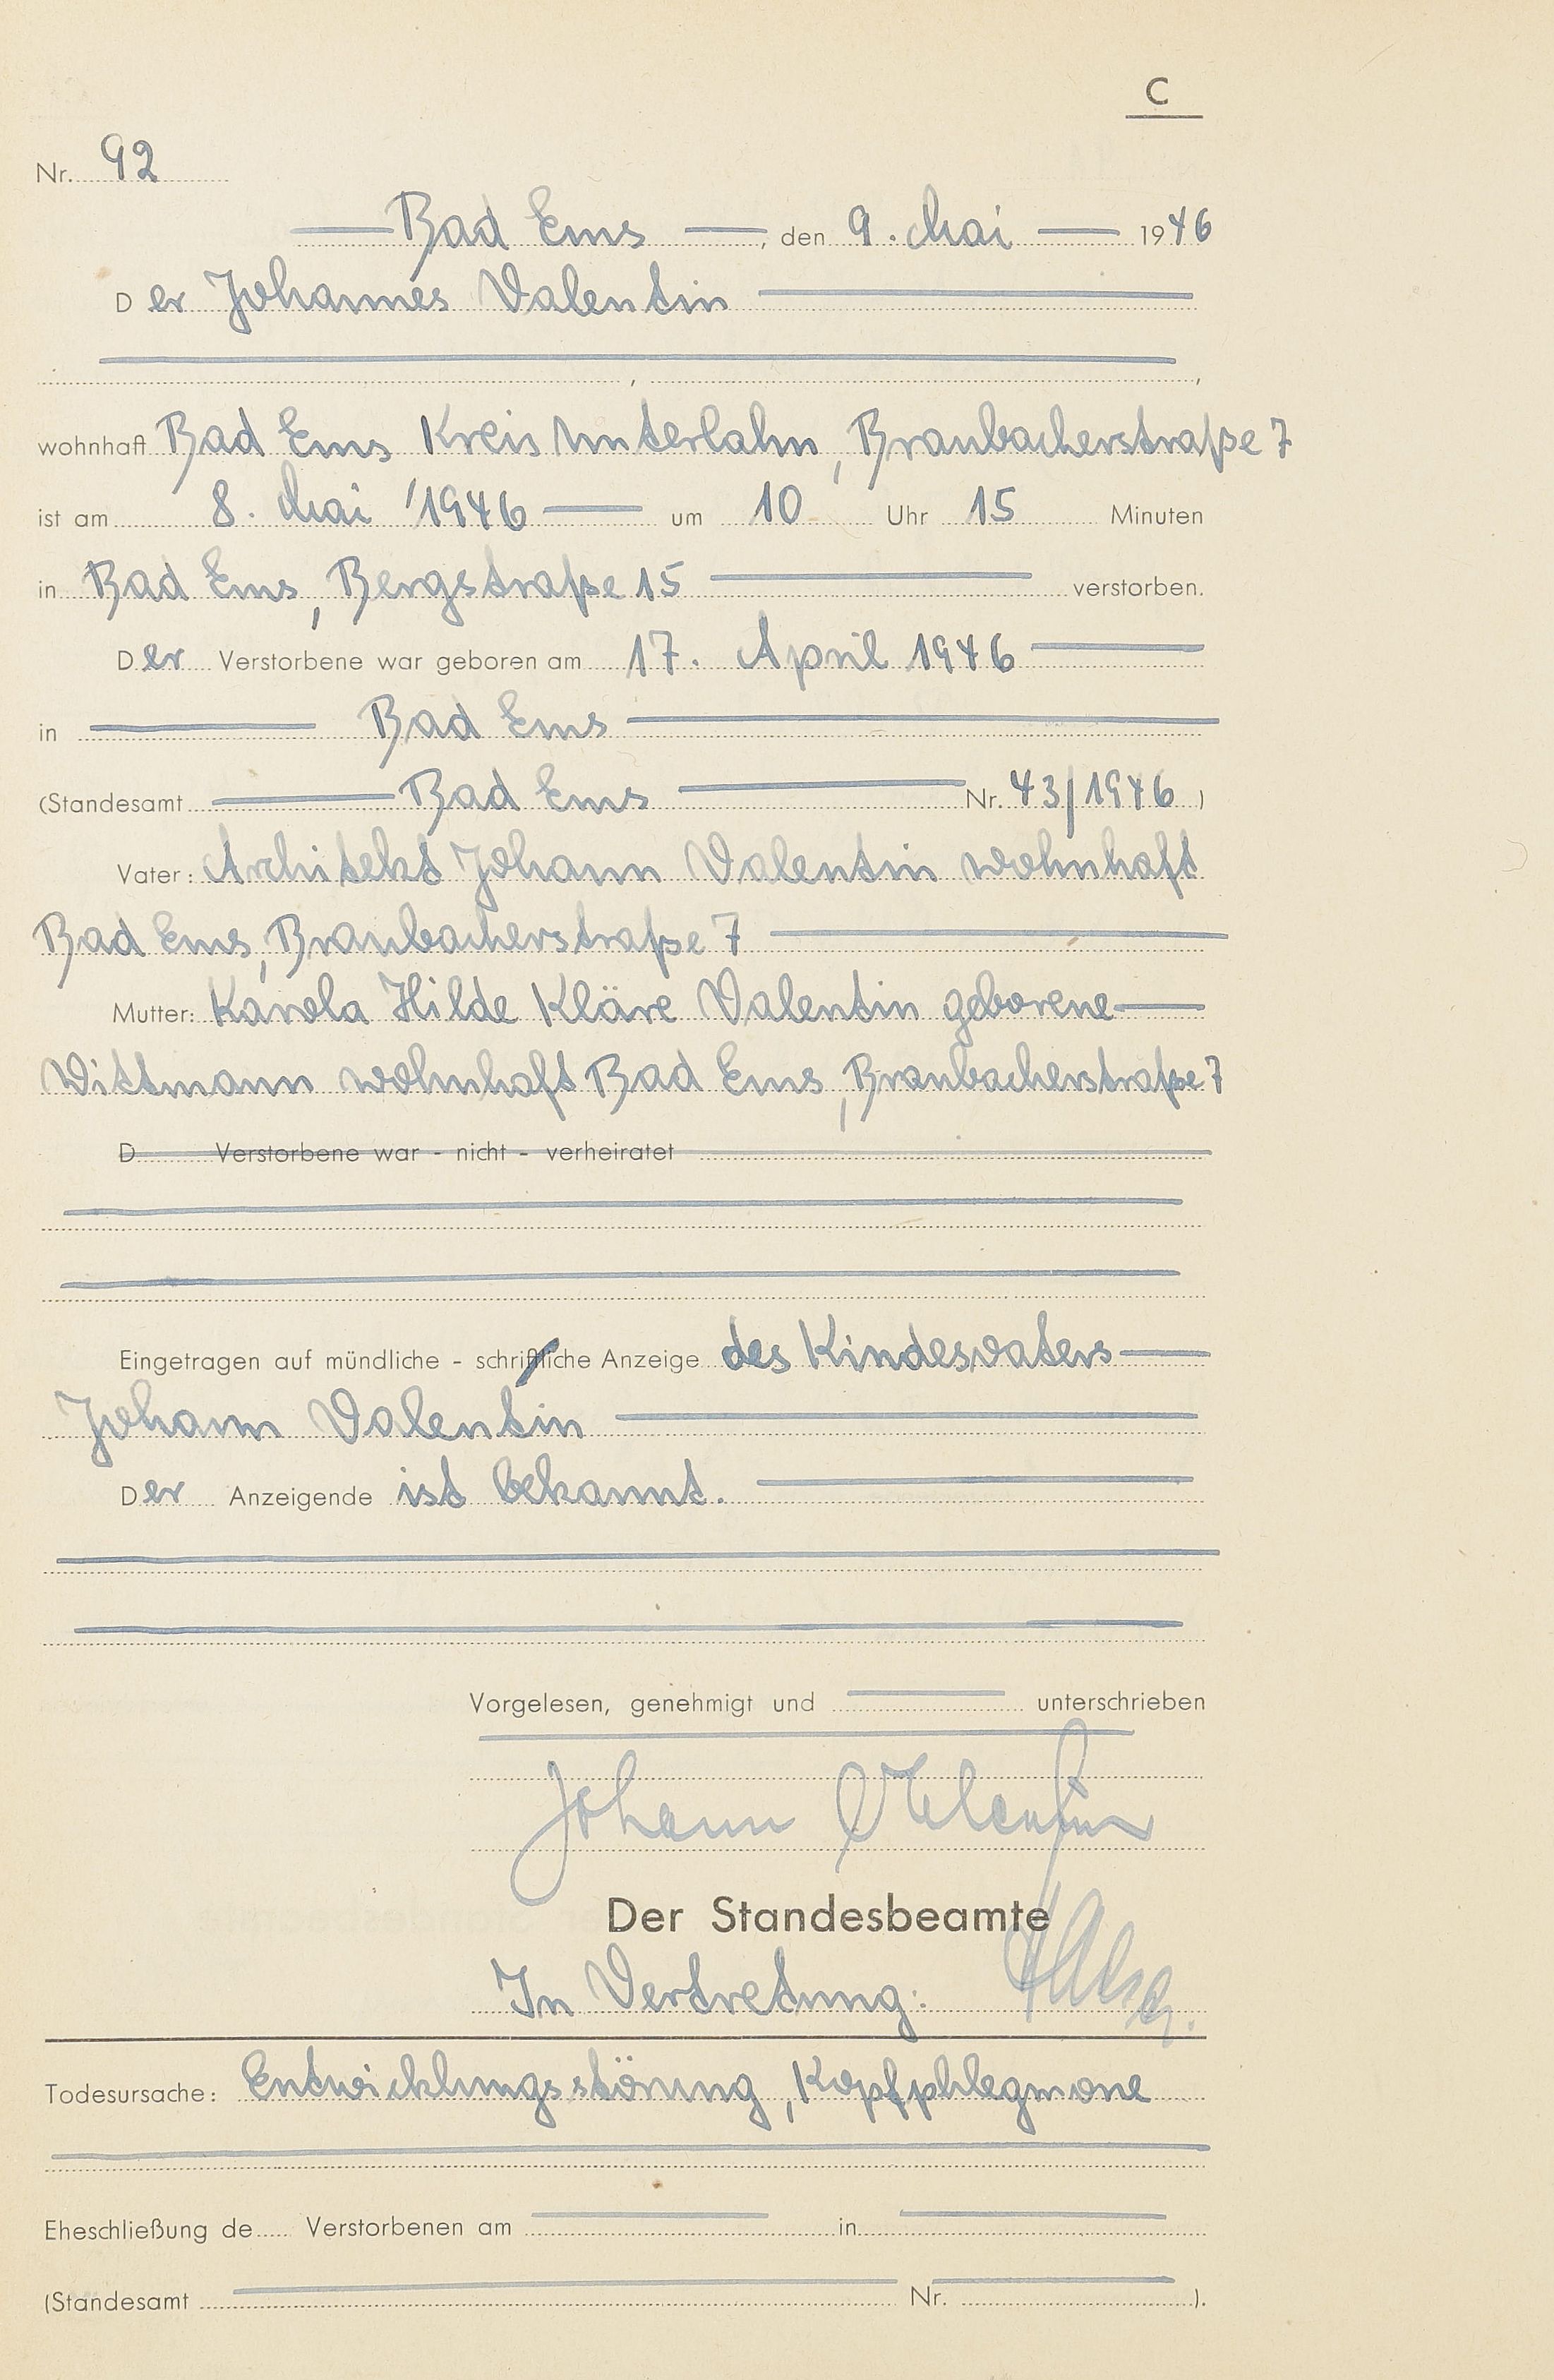 C
Nr. 92
Bad Ems, den 9. Mai 1946
Der Johannes Valentin
, ,
wohnhaft Bad Ems Kreis Unterlahn, Braubacherstraße 7
ist am 8. Mai 1946 um 10 Uhr 15 Minuten
in Bad Ems, Bergstraße 15 verstorben.
Der Verstorbene war geboren am 17. April 1946
in Bad Ems
(Standesamt Bad Ems Nr. 43/1946)
Vater: Architekt Johann Valentin wohnhaft
Bad Ems, Braubacherstraße 7
Mutter: Karola Hilde Kläre Valentin geborene
Wittmann wohnhaft Bad Ems, Braubacherstraße 7
D Verstorbene war - nicht - verheiratet
Eingetragen auf mündliche - schriftliche Anzeige des Kindesvaters
Johann Valentin
Der Anzeigende ist bekannt.
Vorgelesen, genehmigt und unterschrieben
Johann Valentin
Der Standesbeamte
In Vertretung:
Todesursache: Entwicklungsstörung, Kopfphlegmone
Eheschließung de Verstorbenen am in
(Standesamt Nr. ).